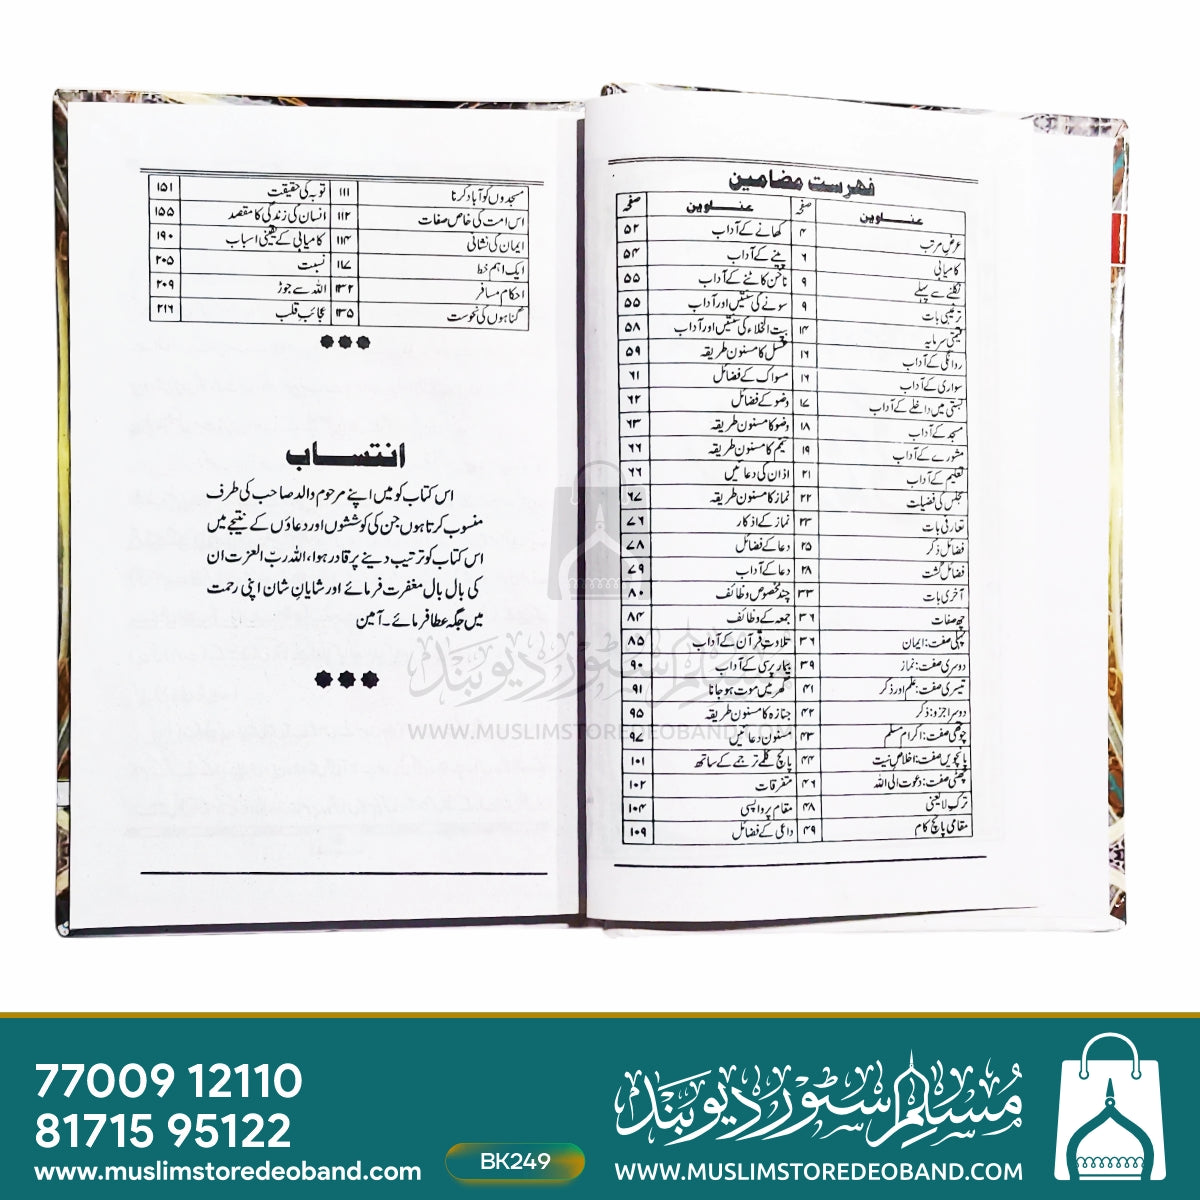 فہرست مضامین
عناوین صفحہ عناوین صفحہ
عرض مرتب ۴ کھانے کے آداب ۵۲
کامیابی ۶ پینے کے آداب ۵۴
نکلنے سے پہلے ۹ ناخن کاٹنے کے آداب ۵۵
ترغیبی بات ۹ سونے کی سنتیں اور آداب ۵۵
قیمتی سرمایہ ۱۴ بیت الخلاء کی سنتیں اور آداب ۵۸
روانگی کے آداب ۱۶ غسل کا مسنون طریقہ ۵۹
سواری کے آداب ۱۶ مسواک کے فضائل ۶۱
بستی میں داخلے کے آداب ۱۷ وضو کے فضائل ۶۲
مسجد کے آداب ۱۸ وضو کا مسنون طریقہ ۶۳
مشورے کے آداب ۱۹ تیمم کا مسنون طریقہ ۶۶
تعلیم کے آداب ۲۱ اذان کی دعائیں ۶۶
مجلس کی فضیلت ۲۲ نماز کا مسنون طریقہ ۶۷
تعارفی بات ۲۳ نماز کے اذکار ۷۶
فضائل ذکر ۲۵ دعا کے فضائل ۷۸
فضائل گشت ۲۸ دعا کے آداب ۷۹
آخری بات ۳۳ چند مخصوص وظائف ۸۰
چھ صفات ۳۶ جمعہ کے وظائف ۸۴
پہلی صفت: ایمان ۳۶ تلاوت قرآن کے آداب ۸۵
دوسری صفت: نماز ۳۹ بیمار پرسی کے آداب ۹۰
تیسری صفت: علم اور ذکر ۴۱ گھر میں موت ہو جانا ۹۱
دوسرا جزو: ذکر ۴۲ جنازہ کا مسنون طریقہ ۹۵
چوتھی صفت: اکرام مسلم ۴۳ مسنون دعائیں ۹۷
پانچویں صفت: اخلاص نیت ۴۴ پانچ کلمے ترجمے کے ساتھ ۱۰۱
چھٹی صفت: دعوت الی اللہ ۴۶ متفرقات ۱۰۲
ترک لایعنی ۴۸ مقام پر واپسی ۱۰۴
مقامی پانچ کام ۴۹ داعی کے فضائل ۱۰۹
مسجدوں کو آباد کرنا ۱۱۱ توبہ کی حقیقت ۱۵۱
اس امت کی خاص صفات ۱۱۲ انسان کی زندگی کا مقصد ۱۵۵
ایمان کی نشانی ۱۱۴ کامیابی کے یقینی اسباب ۱۹۰
ایک اہم خط ۱۱۷ نسبت ۲۰۵
احکام مسافر ۱۳۲ اللہ سے جوڑ ۲۰۹
گناہوں کی نحوست ۱۳۵ عجائب قلب ۲۱۶
انتساب
اس کتاب کو میں اپنے مرحوم والد صاحب کی طرف
منسوب کرتا ہوں جن کی کوششوں اور دعاؤں کے نتیجے میں
اس کتاب کو ترتیب دینے پر قادر ہوا، اللہ ربّ العزت ان
کی بال بال مغفرت فرمائے اور شایانِ شان اپنی رحمت
میں جگہ عطا فرمائے۔ آمین
مسلم سٹور دیوبند
WWW.MUSLIMSTOREDEOBAND.COM
77009 12110
81715 95122
www.muslimstoredeoband.com
BK249
مسلم سٹور دیوبند
WWW.MUSLIMSTOREDEOBAND.COM